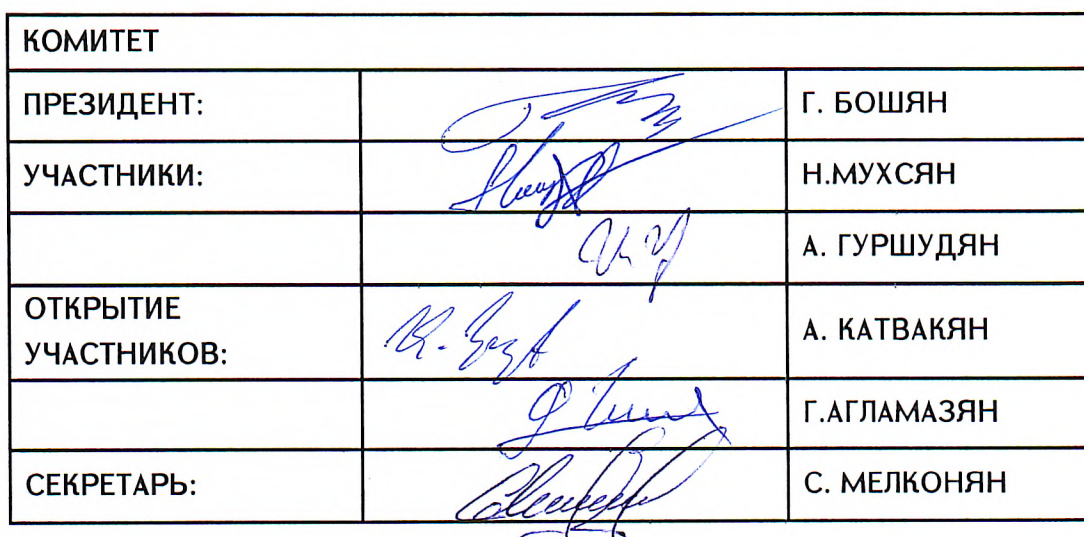 КОМИТЕТ
ПРЕЗИДЕНТ: Г. БОШЯН
УЧАСТНИКИ: Н.МУХСЯН
А. ГУРШУДЯН
ОТКРЫТИЕ
УЧАСТНИКОВ: А. КАТВАКЯН
Г.АГЛАМАЗЯН
СЕКРЕТАРЬ: С. МЕЛКОНЯН